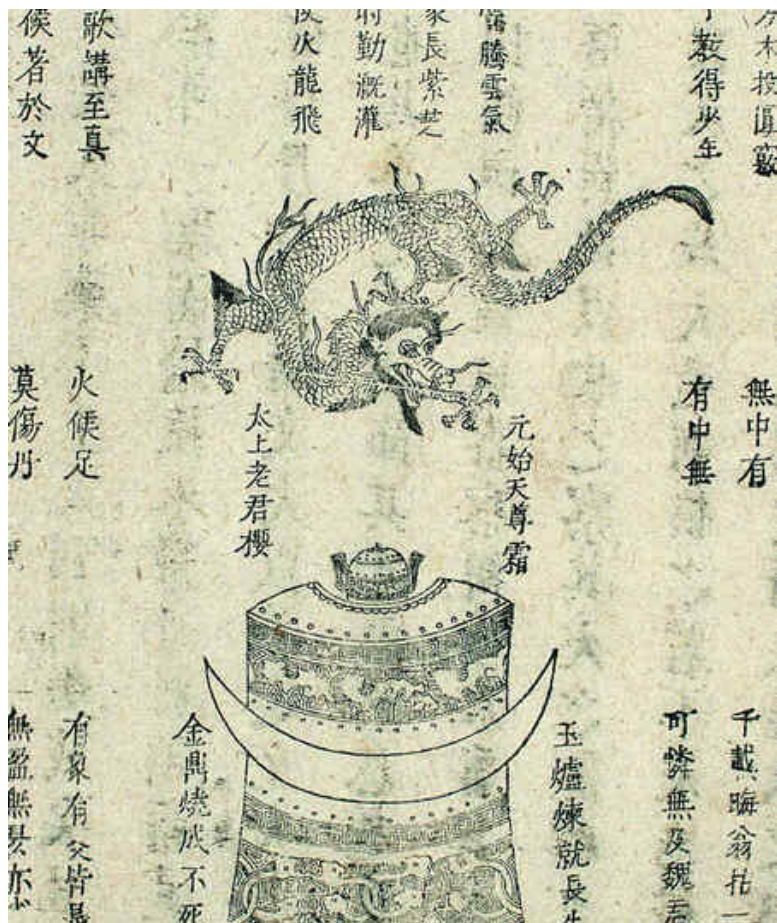 木投
教得少年
騰雲氣
家長紫芝
時勤溉灌
火龍飛
歌講至真
候著於文
無中有
有中無
元始天尊霜
太上老君櫻
火候足
莫傷丹
千載晦翁拈
可憐無及魏
玉爐煉就長生
金鼎燒成不死
有象有爻皆是
無盈無昃亦